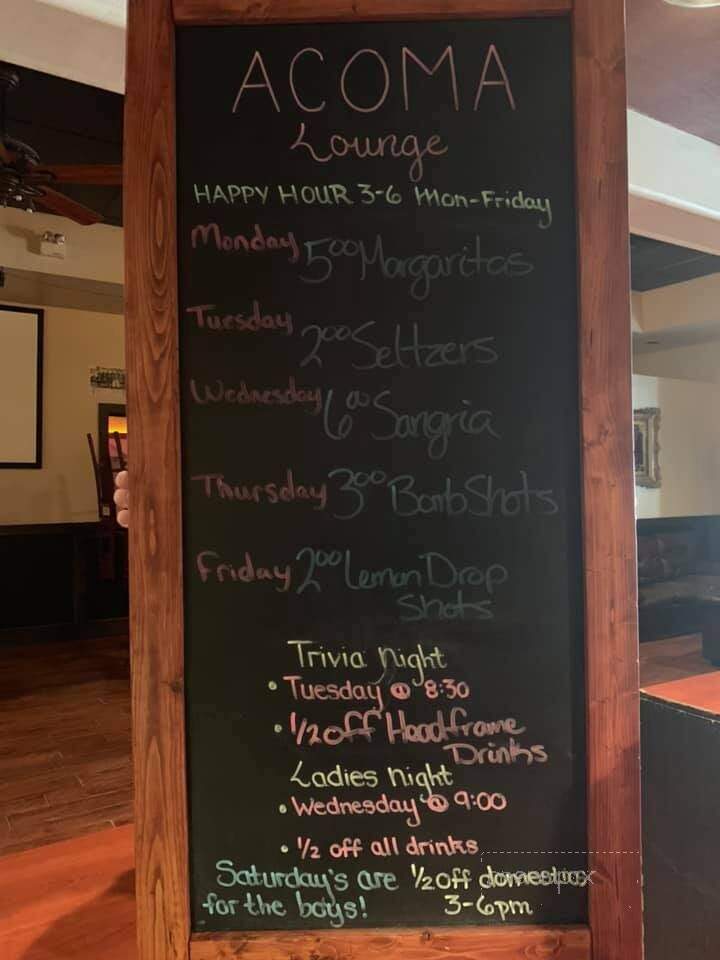 ACOMA
Lounge
HAPPY HOUR 3-6 Mon-Friday
Monday 5⁰⁰ Margaritas
Tuesday 2⁰⁰ Seltzers
Wednesday 6⁰⁰ Sangria
Thursday 3⁰⁰ Bomb Shots
Friday 2⁰⁰ Lemon Drop
Shots
Trivia Night
• Tuesday @ 8:30
• 1/2 off Headframe
Drinks
Ladies night
• Wednesday @ 9:00
• 1/2 off all drinks
Saturday's are 1/2 off
for the boys! 3-6pm